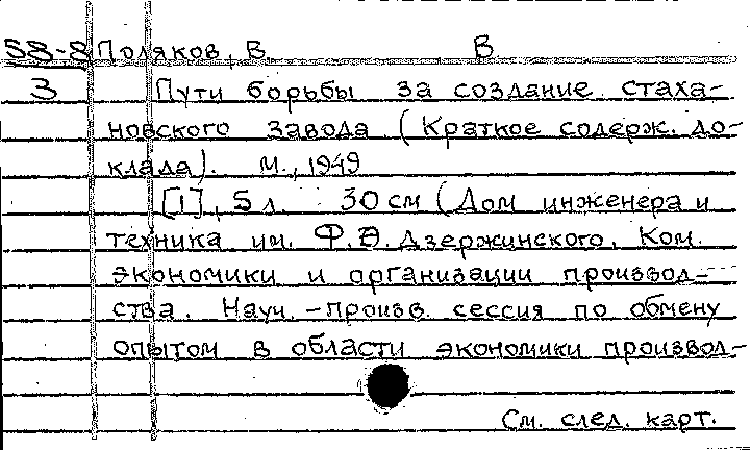 58-8 Поляков, В. В
3 Пути борьбы за создание стаха-
новского завода. (Краткое содерж. до-
клада). М., 1949
[1], 5 л. 30 см (Дом инженера и
техника им. Ф.Э. Дзержинского. Ком.
экономики и организации производ-
ства. Науч.-произв. сессия по обмену
опытом в области экономики производ-
См. след. карт.